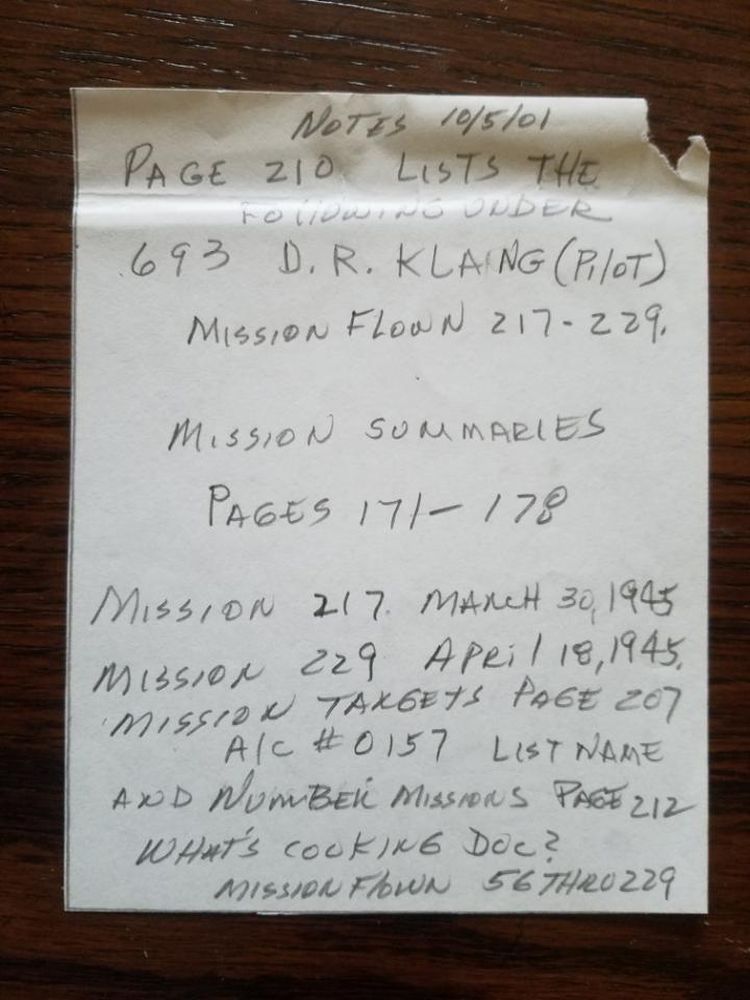 NOTES 10/5/01
PAGE 210 LISTS THE
FOLLOWING UNDER
693 D.R. KLANG (PILOT)
MISSION FLOWN 217-229.
MISSION SUMMARIES
PAGES 171-178
MISSION 217. MARCH 30, 1945
MISSION 229 APRIL 18, 1945.
MISSION TARGETS PAGE 207
A/C #0157 LIST NAME
AND NUMBER MISSIONS PAGE 212
WHAT'S COOKING DOC?
MISSION FLOWN 56 THRU 229